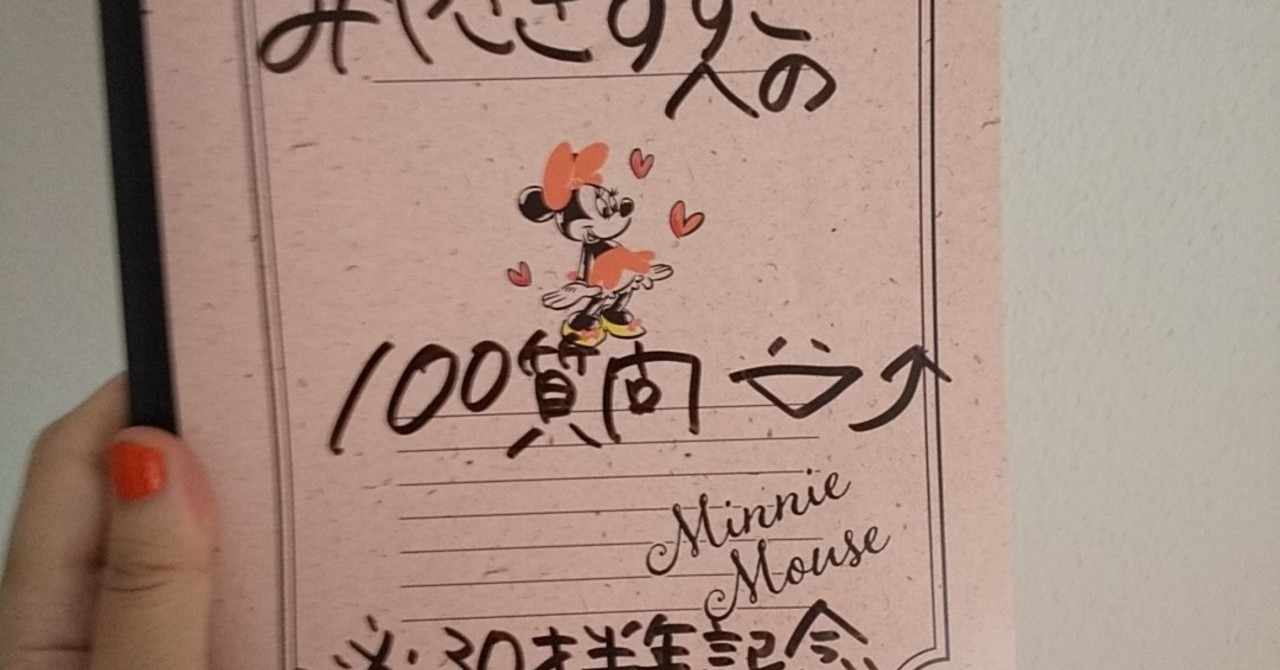 みやざきすずこ
への
100質問
Minnie
Mouse
30才半年記念